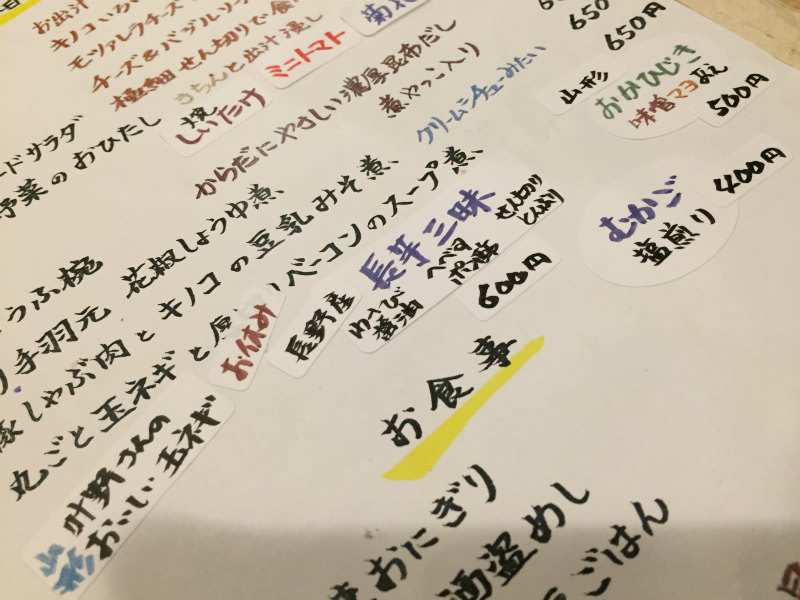 お出汁
キノコいろ
モッツァレラチーズ
チーズ&バジルソー
極細せん切りで食
きちんと出汁浸し
ミニトマト
菊花
650
650円
ードサラダ
野菜のおひたし
焼
しいたけ
からだにやさしい濃厚昆布だし
煮やっこ入り
クリームシチューみたい
山形
おかひじき
味噌マヨ和え
500円
うふ椀
手羽元 花椒しょうゆ煮、
豚しゃぶ肉とキノコの豆乳みそ煮、
丸ごと玉ネギと
ベーコンのスープ煮、
お休み
長野産
長芋三昧
せん切り
とんぶり
わさび
醤油
ポン酢
600円
むかご
塩煎り
400円
山形
叶野さんの
おいしい玉ネギ
お食事
おにぎり
酒盗めし
ごはん